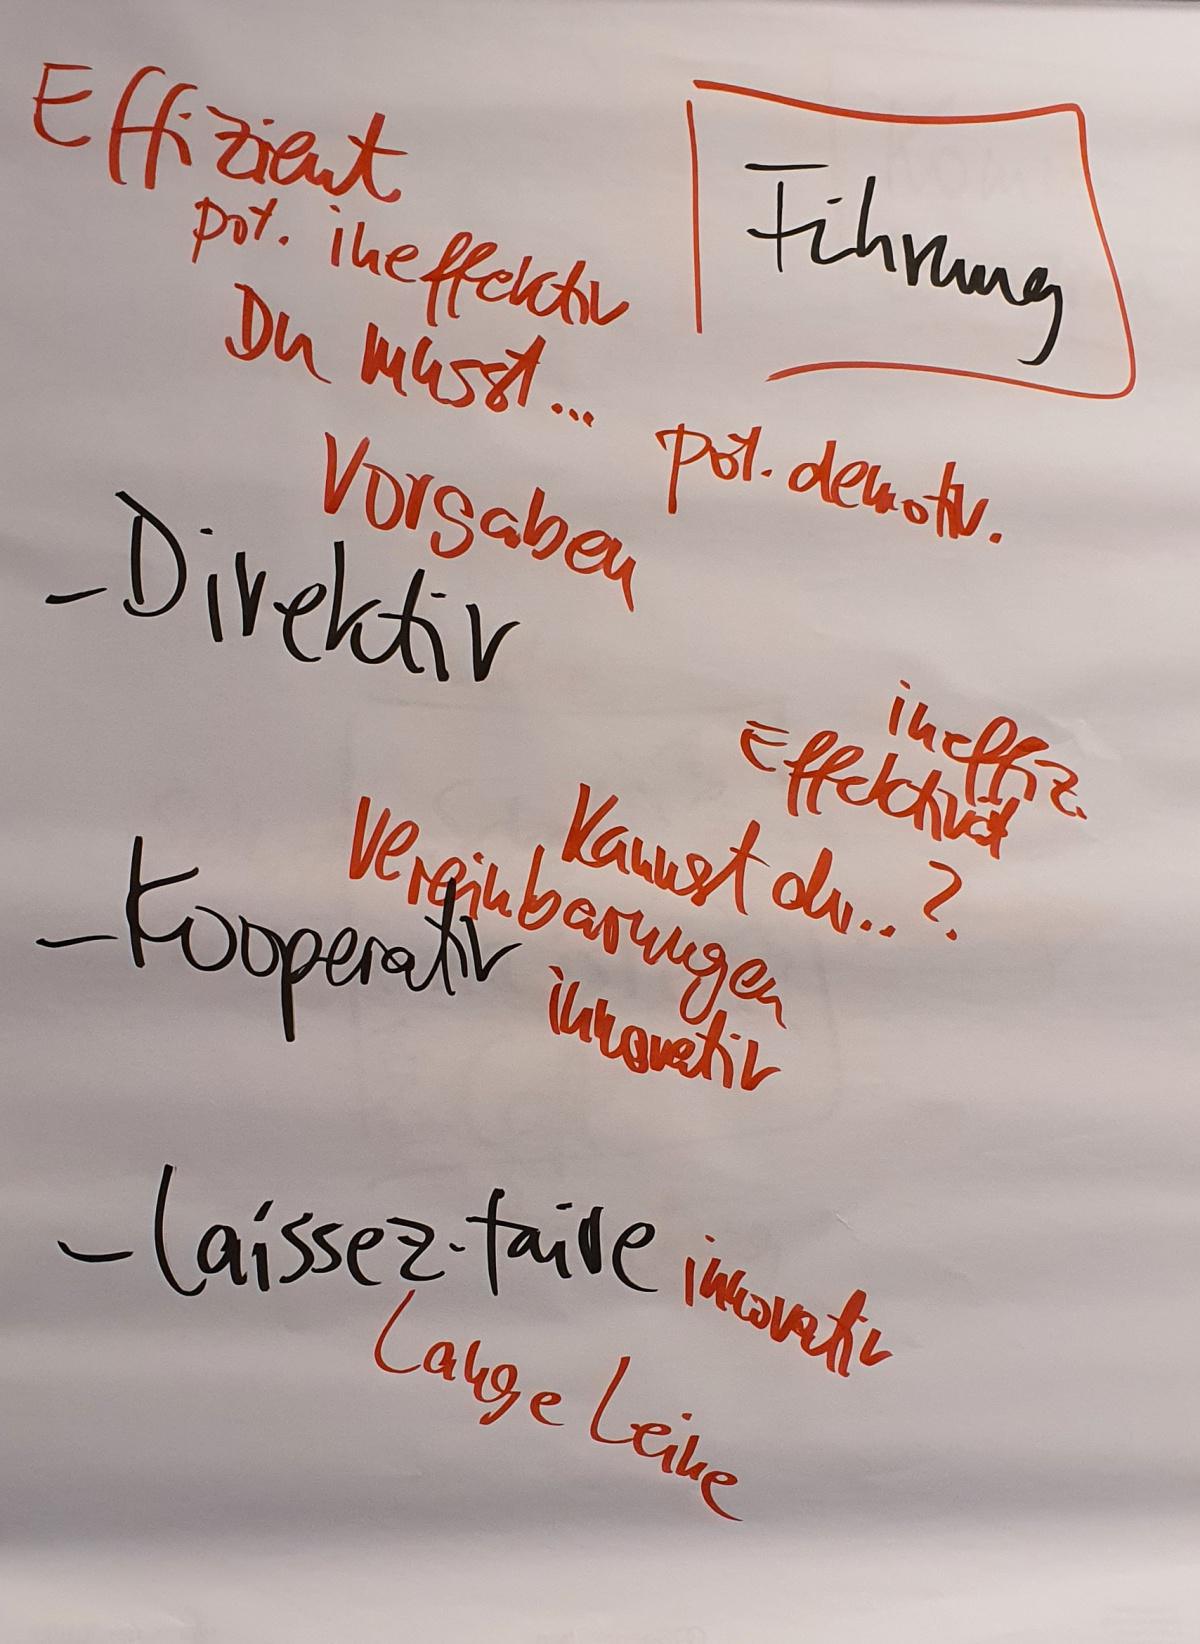 Führung
Effizient
pot. ineffektiv
Du musst...
pot. demotiv.
Vorgaben
- Direktiv
ineffiz.
Effektivst
Kannst du...?
Vereinbarungen
- Kooperativ
innovativ
- Laissez-faire innovativ
Lange Leine